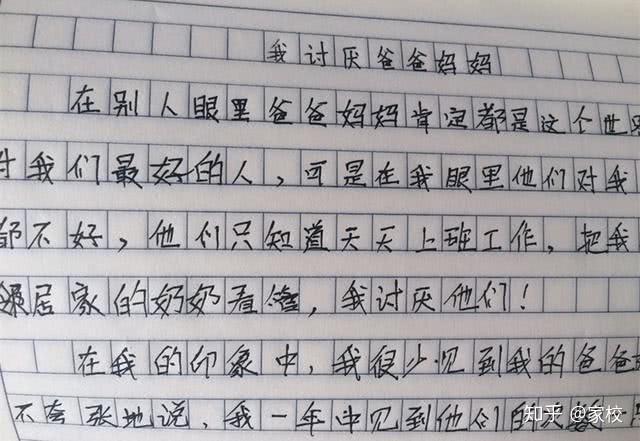 我讨厌爸爸妈妈
在别人眼里爸爸妈妈肯定都是这个世界
对我们最好的人，可是在我眼里他们对我
都不好，他们只知道天天上班工作，把我
居家的奶奶看管，我讨厌他们！
在我的印象中，我很少见到我的爸爸
不夸张地说，我一年中见到他们的次数
知乎 @家校